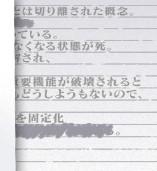 とは切り離された概念。
ている。
なくなる状態が死。
され、
要機能が破壊されると
どうしようもないので、
を固定化
。